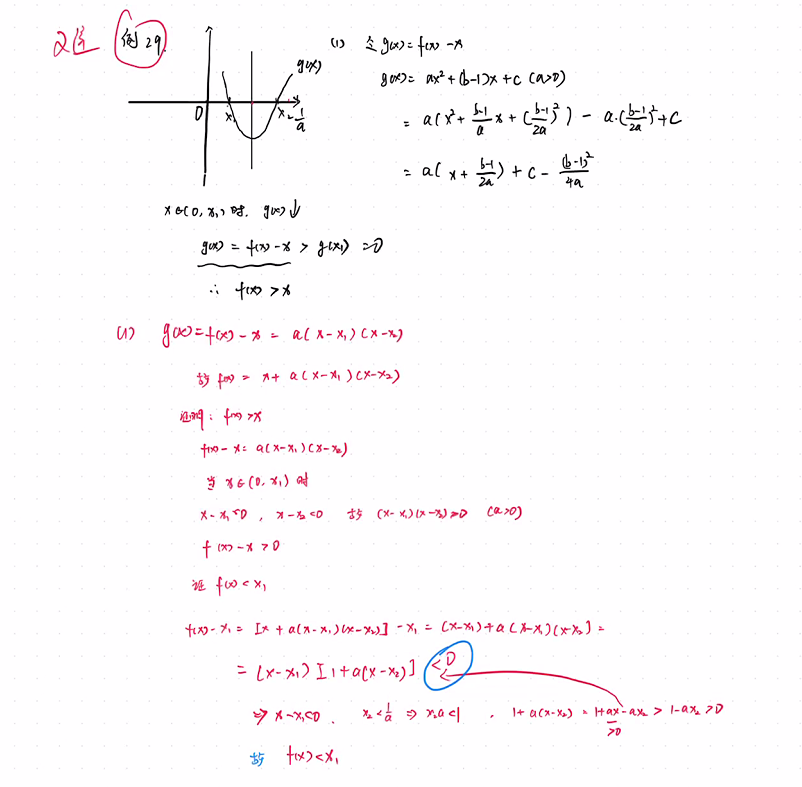 例29.
g(x)
0 x₁ x₂ 1/a x
(1) 令 g(x) = f(x) - x
g(x) = ax² + (b-1)x + c (a>0)
= a(x² + (b-1)/a x + ((b-1)/2a)²) - a·((b-1)/2a)² + c
= a(x + (b-1)/2a) + c - (b-1)²/4a
x∈(0, x₁) 时. g(x)↓
g(x) = f(x) - x > g(x₁) = 0
∴ f(x) > x
(1) g(x) = f(x) - x = a(x-x₁)(x-x₂)
故 f(x) = x + a(x-x₁)(x-x₂)
证明: f(x) > x
f(x) - x = a(x-x₁)(x-x₂)
当 x∈(0, x₁) 时
x-x₁<0, x-x₂<0 故 (x-x₁)(x-x₂)>0 (a>0)
f(x) - x > 0
证 f(x) < x₁
f(x) - x₁ = [x + a(x-x₁)(x-x₂)] - x₁ = (x-x₁) + a(x-x₁)(x-x₂) =
= (x-x₁)[1+a(x-x₂)] <0
⇒ x-x₁<0. x₂<1/a ⇒ x₂a<1, 1+a(x-x₂) = 1+ax-ax₂ > 1-ax₂ >0
>0
故 f(x)<x₁